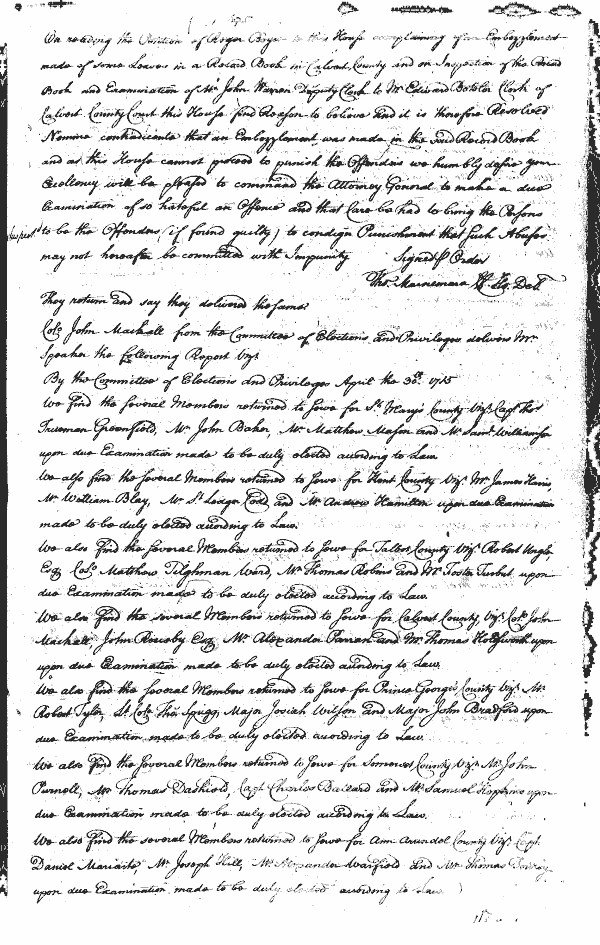 On reading the Petition of Roger Boyce to this House complaining of an Embezzlement
made of some Leaves in a Record Book in Calvert County and on Inspection of the Record
Book and Examination of Mr. John Warren Deputy Clerk to Mr Edward Boteler Clerk of
Calvert County Court this House find Reason to believe and it is therefore Resolved
Nemine contradicente that an Embezzlement was made in the said Record Book
and as this House cannot proceed to punish the Offenders we humbly desire your
Excellency will be pleased to command the Attorney General to make a due
Examination of so hateful an Offence and that Care be had to bring the Persons
to be the Offenders (if found guilty) to condign Punishment that such Abuses
may not hereafter be committed with Impunity Signed p Order
Tho: Macnemara Cl. Ho. Del
They return and say they delivered the same.
Colo. John Mackall from the Committee of Elections and Privileges delivers Mr
Speaker the following Report Vizt.
By the Committee of Elections and Privileges April the 30th. 1715
We find the several Members returned to serve for St. Mary's County Vizt. Capt Thos
Trueman Greenfield, Mr John Baker, Mr. Matthew Mason and Mr Saml. Williamson
upon due Examination made to be duly elected according to Law.
We also find the several Members returned to serve for Kent County Vizt. Mr James Harris,
Mr William Blay, Mr St. Ledger Codd and Mr Andrew Hamilton upon due Examination
made to be duly elected according to Law.
We also find the several Members returned to serve for Talbot County Vizt Robert Ungle,
Esq Colo. Matthew Tilghman Ward, Mr Thomas Robins and Mr Foster Turbut upon
due Examination made to be duly elected according to Law.
We also find the several Members returned to serve for Calvert County, Vizt. Colo John
Mackall, John Rousby Esq Mr Alexander Parran and Mr. Thomas Holdsworth upon
upon due Examination made to be duly elected according to Law.
We also find the several Members returned to serve for Prince George's County Vizt. Mr
Robert Tyler, Lt. Colo Thos. Sprigg, Major Josiah Wilson and Major John Bradford upon
due Examination made to be duly elected according to Law
We also find the several Members returned to serve for Somerset County Vizt Mr John
Purnell, Mr Thomas Dashield, Capt Charles Ballard and Mr Samuel Hopkins upon
due Examination made to be duly elected according to Law.
We also find the several Members returned to serve for Ann Arundel County Vizt. Capt
Daniel Mariarte, Mr Joseph Hill, Mr Alexander Warfield and Mr Thomas
upon due Examination made to be duly elected according to Law.